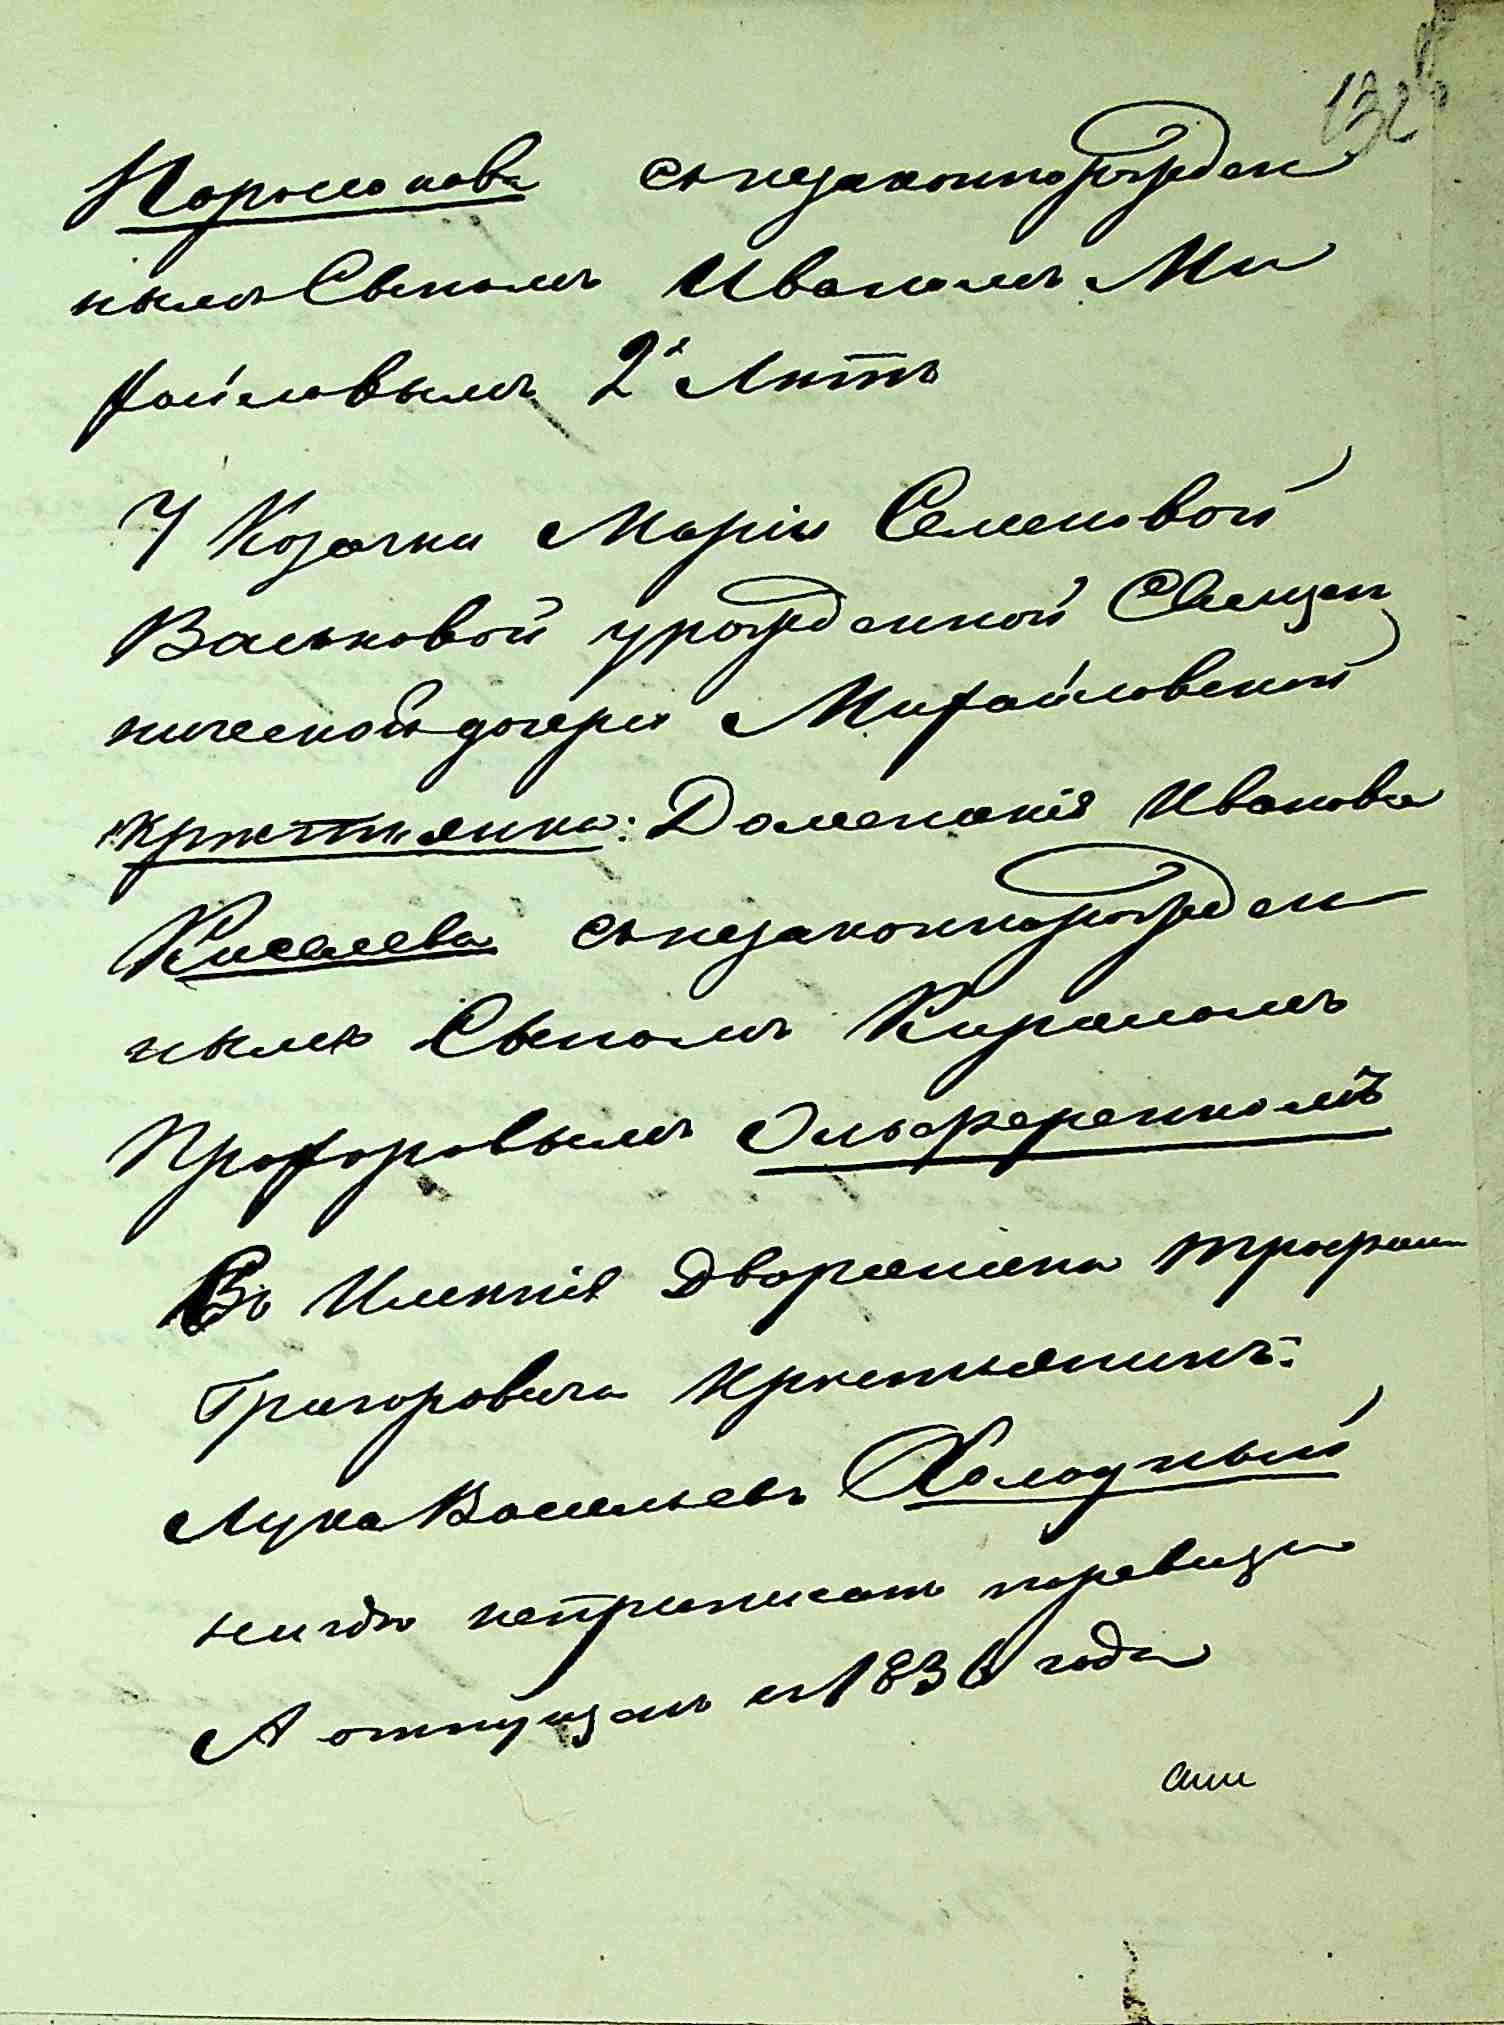 132
Порошкова съ незаконнорожден
нымъ Сыномъ Иваномъ Ми
хайловымъ 2х Лѣтъ
У Козачки Маріи Семеновой
Васьковой урожденной Священ
нической дочери Михайловской
крестьянка: Доменикія Иванова
Киселева съ незаконнорожден
нымъ Сыномъ Киріаномъ
Прохоровымъ Ольференкомъ
Въ Имѣнія Дворянина Трофим
Григоровича Крестьянинъ:
Лука Васильевъ Холодный
нигдѣ не приписанъ по ревизи
А отпущенъ съ 1836 года